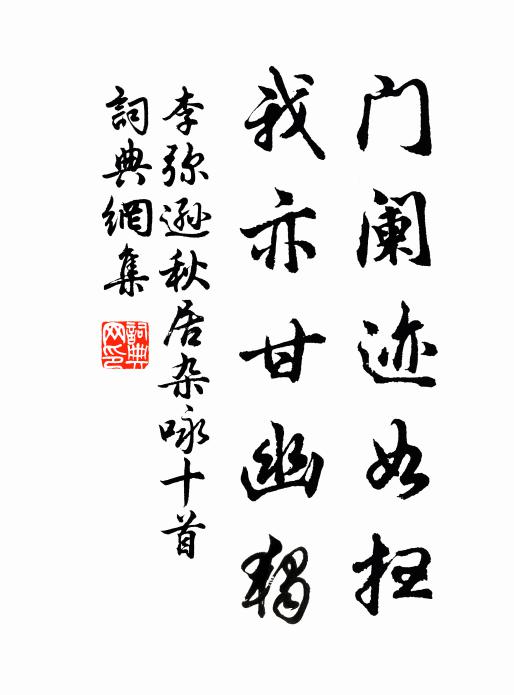 门阑迹如扫
我亦甘幽獨
李弥遜秋居杂咏十首
詞典網集
詞典网印